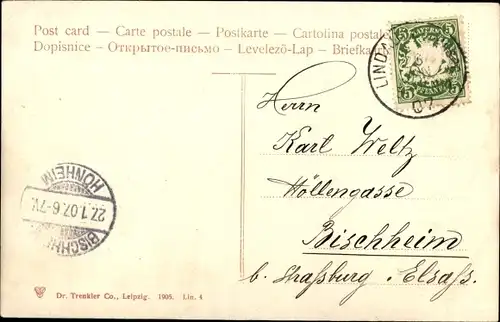 Post card – Carte postale – Postkarte – Cartolina postale
Dopisnice – Открытое-письмо – Levelező-Lap – Briefkaart
BAYERN
5 5
PFENNIG
LINDAU
07
Herrn
Karl Weltz
Höllengasse
Bischheim
b. Straßburg Elsaß.
HÖNHEIM
27.1.07.6-7V.
BISCHHEIM
Dr. Trenkler Co., Leipzig. 1905. Lin. 4